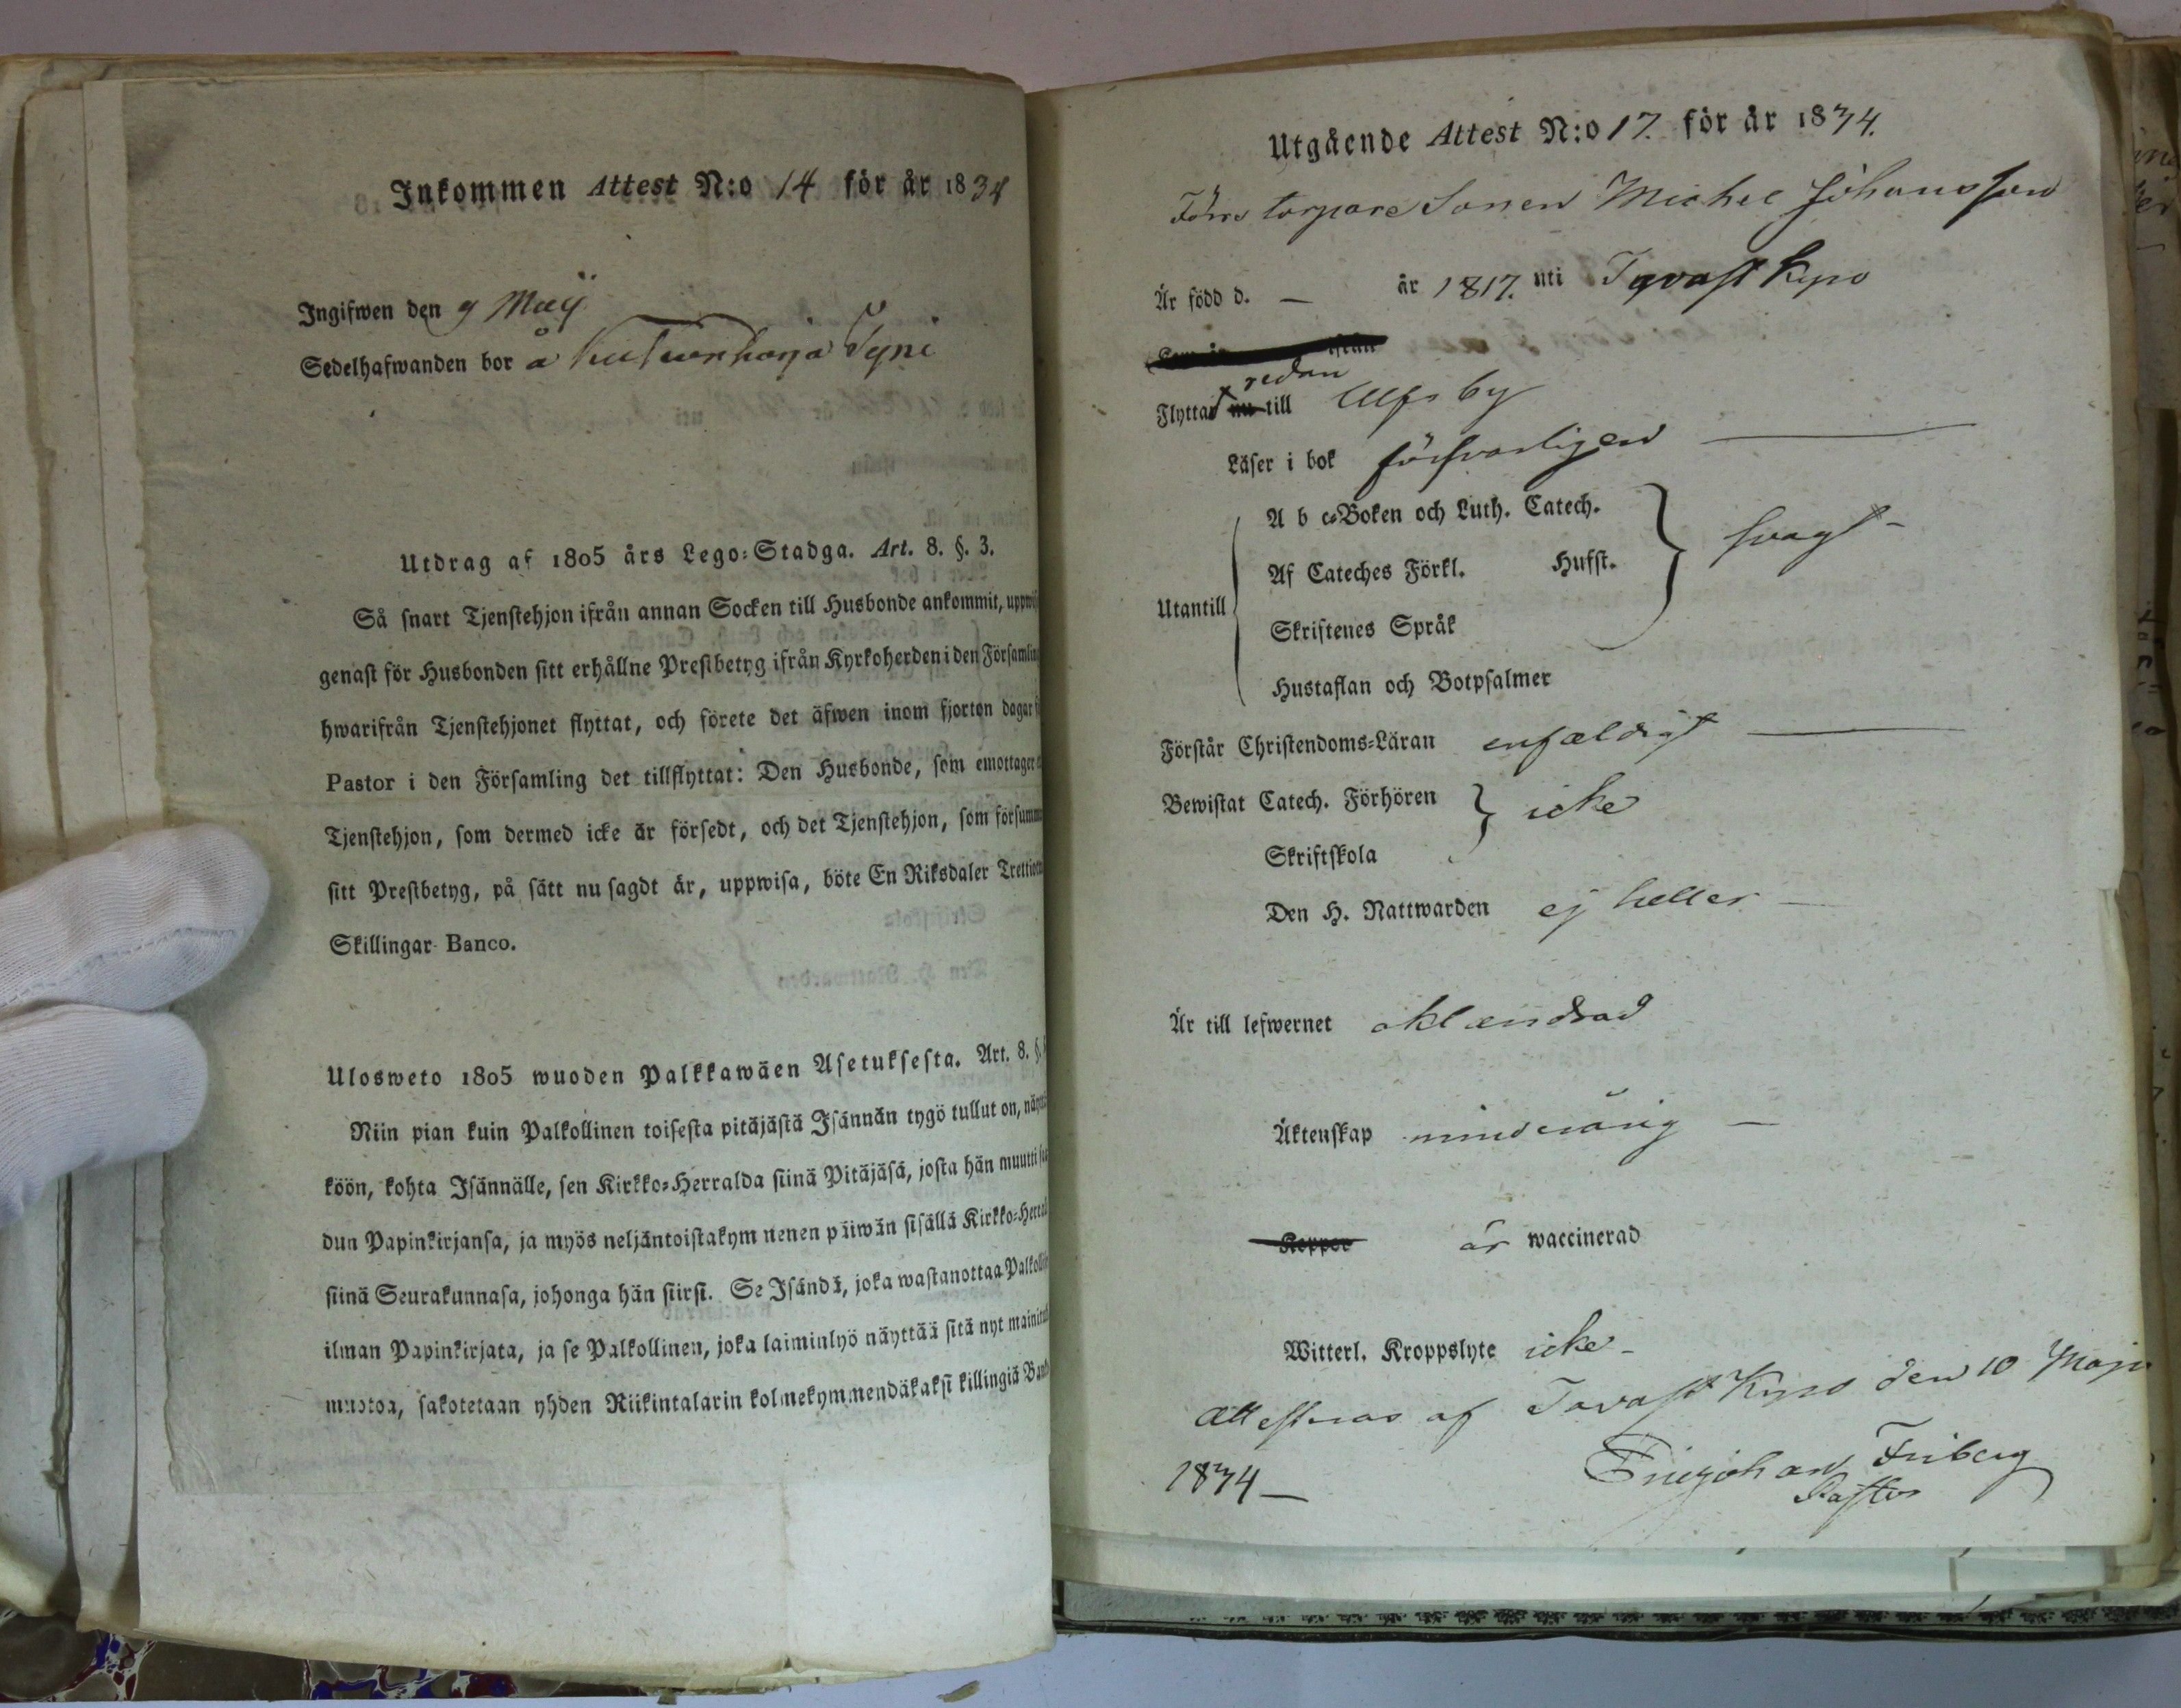 Inkommen Attest N:o 14 för år 1834
Ingifwen den 9 Maij
Sedelhafwanden bor å
Utdrag af 1805 års Lego-Stadga. Art. 8. §. 3.
Så snart Tjenstehjon ifrån annan Socken till Husbonde ankommit, uppwis
genast för Husbonden sitt erhållne Prestbetyg ifrån Kyrkoherden i den Församling
hwarifrån Tjenstehjonet flyttat, och förete det äfwen inom fjorton dagar
Pastor i den Församling det tillflyttat: Den Husbonde, som emottager
Tjenstehjon, som dermed icke är försedt, och det Tjenstehjon, som försumm
sitt Prestbetyg, på sätt nu sagdt är, uppwisa, böte En Riksdaler Trettio
Skillingar Banco.
Ulosweto 1805 wuoden Palkkawäen Asetuksesta. Art. 8. §.
Niin pian kuin Palkollinen toisesta pitäjästä Isännän tygö tullut on, näyttä
köön, kohta Isännälle, sen Kirkko-Herralda siinä Pitäjäsä, josta hän muutti
dun Papinkirjansa, ja myös neljäntoistakymmenen päiwän sisällä Kirkko-Herral
siinä Seurakunnasa, johonga hän siirsi. Se Isändä, joka wastanottaa Palkollis
ilman Papinkirjata, ja se Palkollinen, joka laiminlyö näyttää sitä nyt mainitul
muotoa, sakotetaan yhden Riikintalarin kolmekymmendäkaksi killingiä Banco
Utgående Attest N:o 17. för år 1834.
Förre torpare Sonen Michel Johansson
Är född d. — år 1817. uti Tavastkyro
redan
Flyttad nu till Ulfsby
Läser i bok försvarligen
A b c-Boken och Luth. Catech.
Af Cateches Förkl. Hufst. svagt
Utantill
Skriftenes Språk
Hustaflan och Botpsalmer
Förstår Christendoms-Läran enfaldigt
Bewistat Catech. Förhören icke
Skriftskola
Den H. Nattwarden ej heller
Är till lefwernet oklandrad
Äktenskap minderårig
Koppor är waccinerad
Witterl. Kroppslyte icke
Attesteras af Tavast Kyro den 10 Maji
1834 Friberg
Pastor